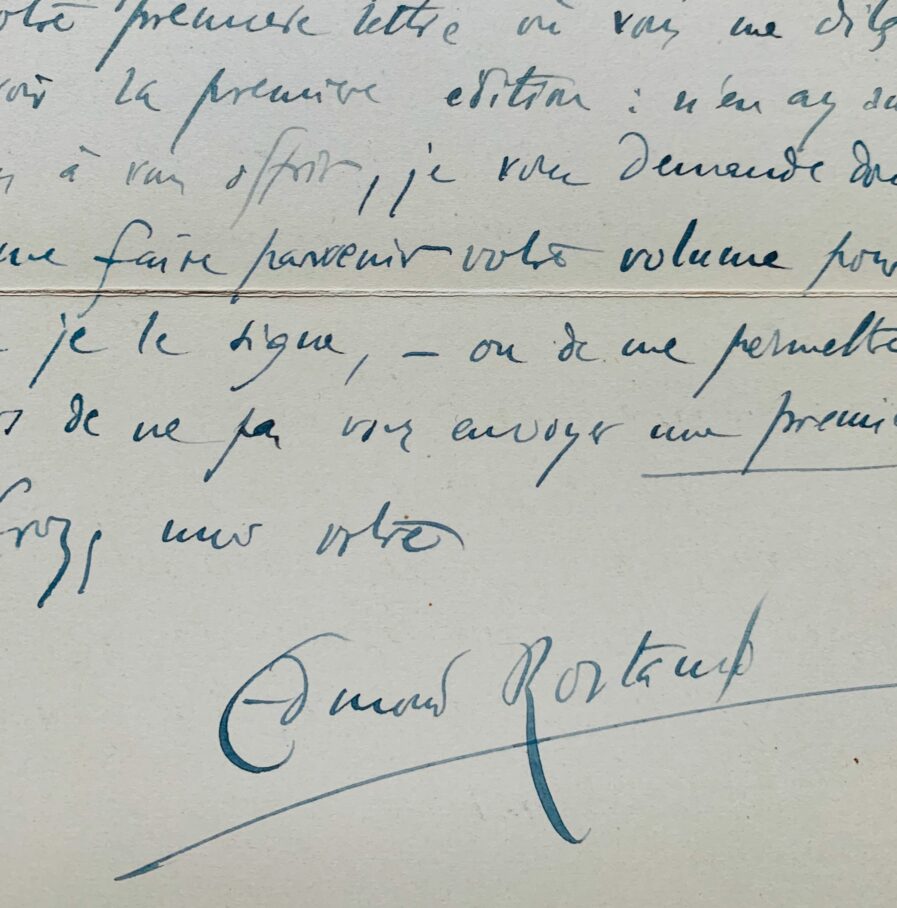 otre première lettre où vous me dites
voir la première édition : n'en ay au
à vous offrir, je vous demande don
me faire parvenir votre volume pour
je le signe, – ou de me permettre
de ne pas vous envoyer une premiè
Croyez moi votre
Edmond Rostand